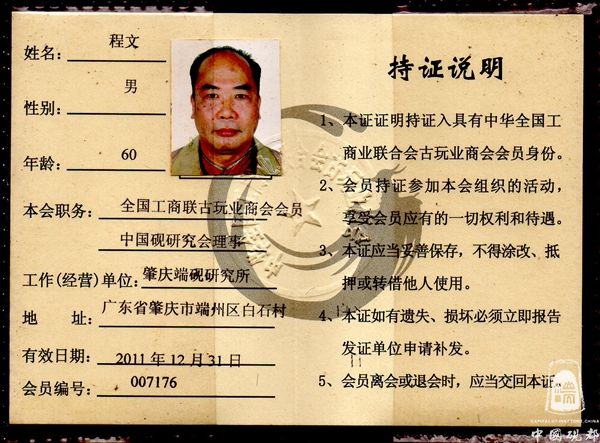 姓名: 程文
性别: 男
年龄: 60
本会职务: 全国工商联古玩业商会会员
中国砚研究会理事
工作(经营)单位: 肇庆端砚研究所
地 址: 广东省肇庆市端州区白石村
有效日期: 2011年12月31日
会员编号: 007176
持证说明
1、本证证明持证入具有中华全国工
商业联合会古玩业商会会员身份。
2、会员持证参加本会组织的活动，
享受会员应有的一切权利和待遇。
3、本证应当妥善保存，不得涂改、抵
押或转借他人使用。
4、本证如有遗失、损坏必须立即报告
发证单位申请补发。
5、会员离会或退会时，应当交回本证
CAPITAL OF INKSTONE, CHINA
中國硯都